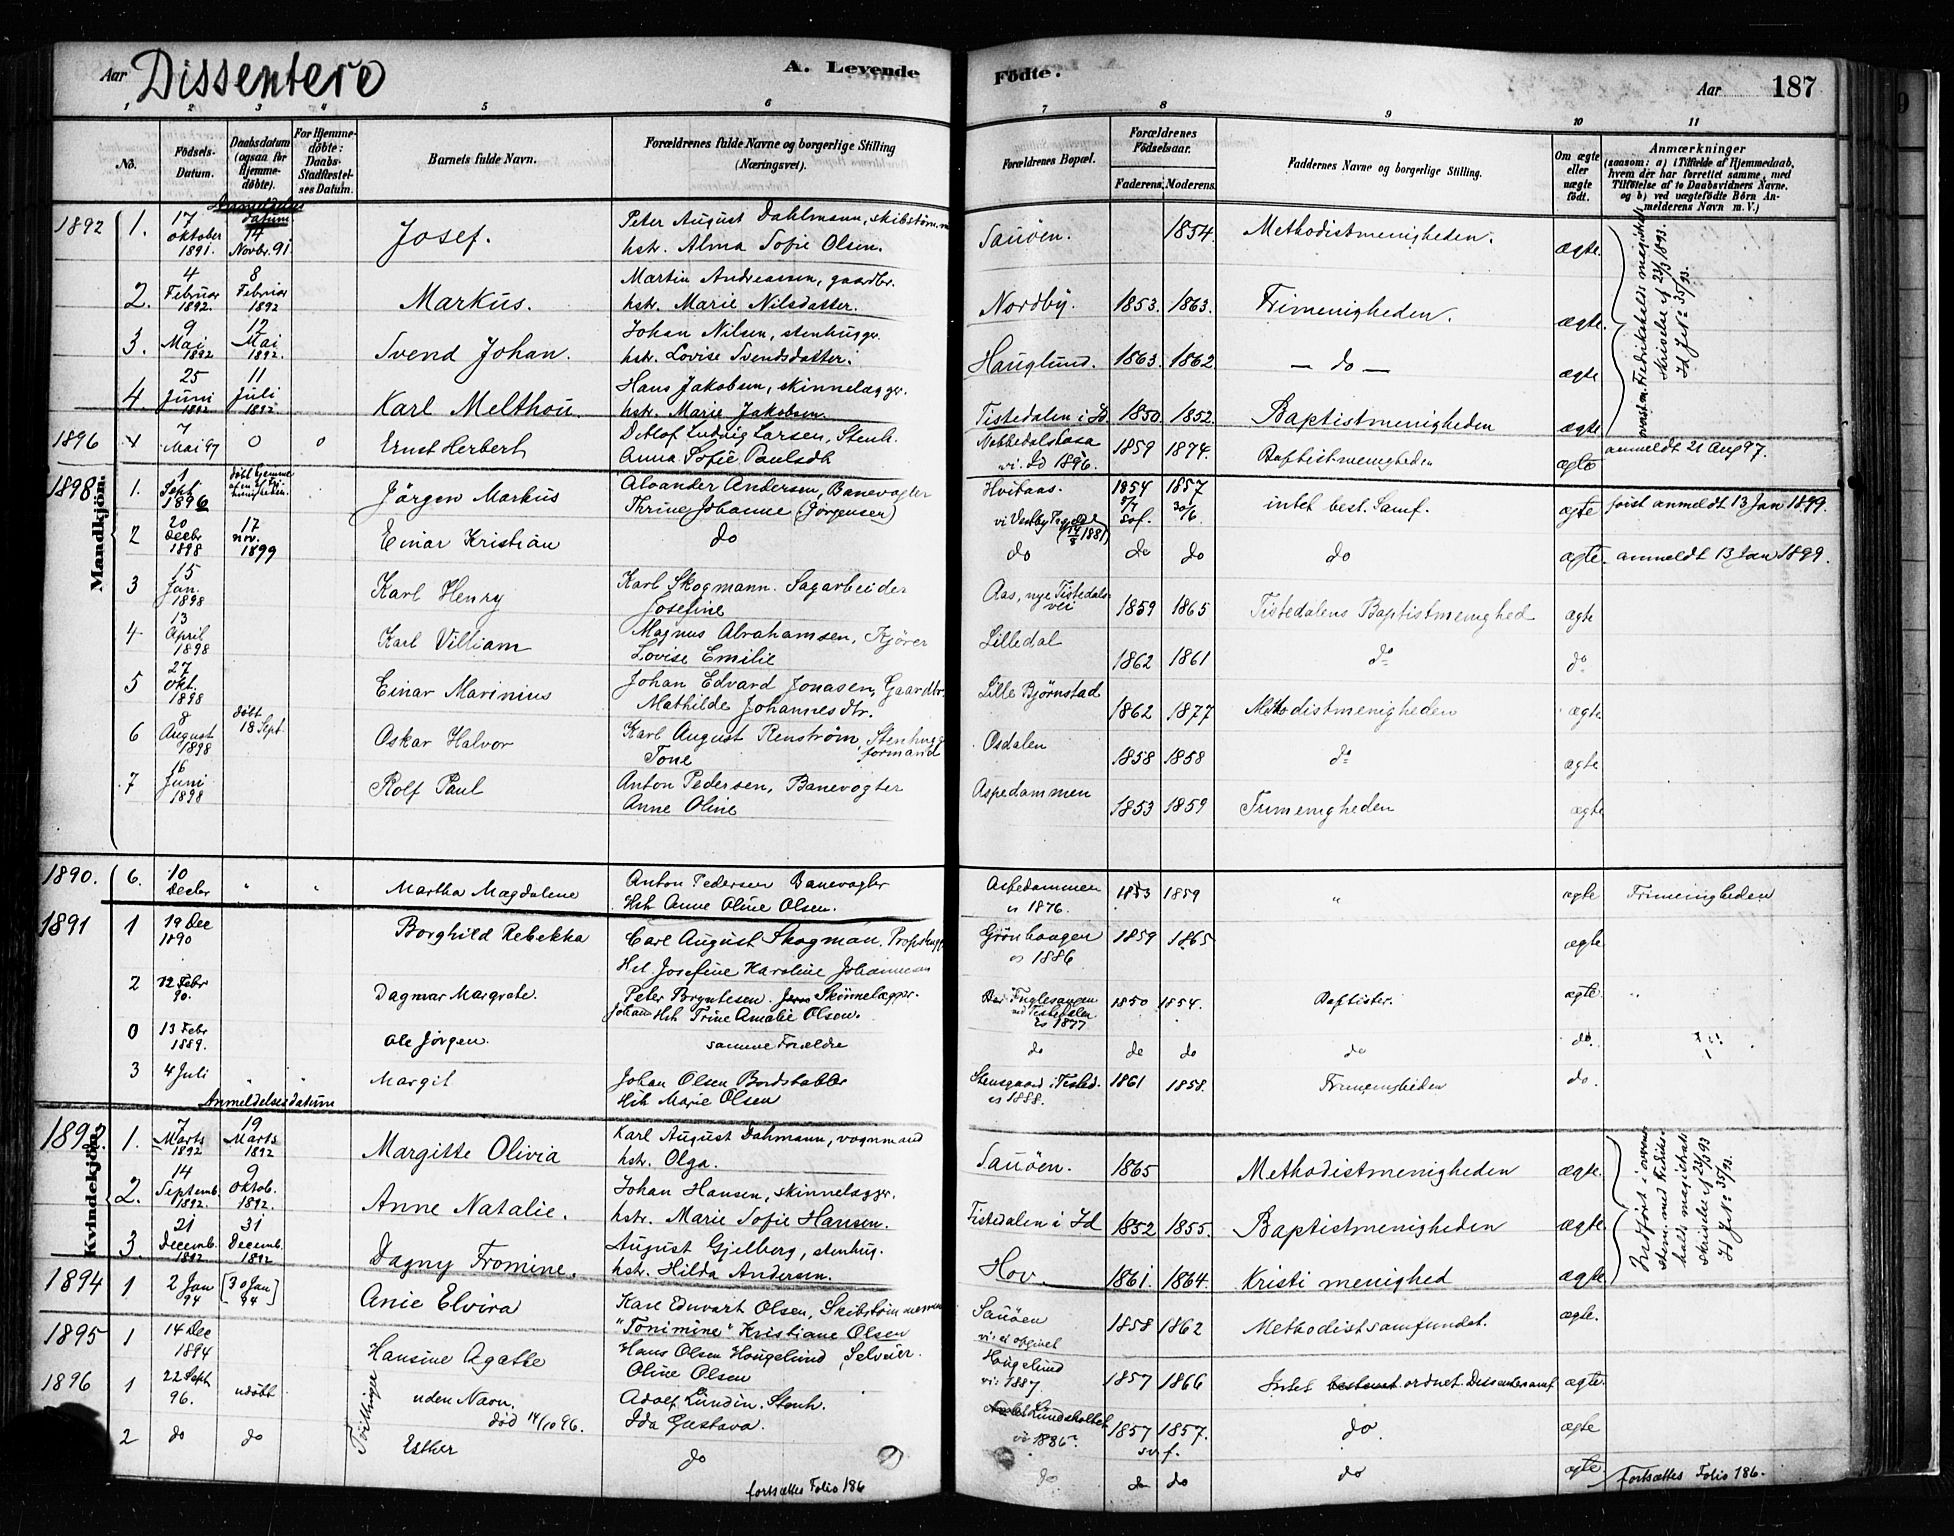 Aar Dissentere A. Levende Fødte. Aar 187
1 2 3 4 5 6 7 8 9 10 11
No.
Fødsels-
Datum.
Daabsdatum
(ogsaa for
Hjemme-
døbte).
For Hjemme-
døbte:
Daabs-
Stadfæstel-
ses Datum.
Barnets fulde Navn.
Forældrenes fulde Navne og borgerlige Stilling
(Næringsvei).
Forældrenes Bopæl.
Forældrenes
Fødselsaar.
Faderens. Moderens.
Faddernes Navne og borgerlige Stilling.
Om ægte
eller
uægte
født.
Anmærkninger
(saasom: a) i Tilfælde af Hjemmedaab,
hvem der har forrettet samme, med
Tilføielse af to Daabsvidners Navne.
og b) ved uægtefødte Børn An-
melderens Navn m. V.)
Anmeldelses
datum
Mandkjøn.
1892 1. 17 Oktober 1891. 14 Novbr. 91 Josef. Peter August Dahlmann, skibstøm.
hstr. Alma Sofie Olsen. Sauøen. 1854. Methodistmenigheden. ægte.
2. 4 Februar 1892. 8 Februar 1892 Markus. Martin Andreassen, gaardbr.
hstr. Marie Nilsdatter. Nordby. 1853. 1863. Frimenigheden. ægte.
3. 9 Mai 1892 12 Mai 1892. Svend Johan. Johan Nilsen, stenhugger
hstr. Lovise Svendsdatter. Hauglund. 1863. 1862 — do — ægte
4. 25 Juni 1892 11 Juli 1892 Karl Melthou. Hans Jakobsen, skinnelægger.
hstr. Marie Jakobsen. Tistedalen i Id 1850 1852. Baptistmenigheden ægte
overst. m. Fredrikshalds magistrats
skrivelse af 23/3 1893.
Id J. No 35/93.
1896 7 Mai 97 0 0 Ernst Herbert Detlof Ludvig Larsen, Stenh.
Anna Sofie Paulsdtr
vi. Id 1896. 1859 1874. Baptistmenigheden ægte anmeldt 21 Aug 97.
1898 1. 1 Sept 1896 Jörgen Markus Alvander Andersen, Banevogter
Thrine Johanne (Jørgensen) Hvitaas. 1854 1857 intet best. Samf. ægte først anmeldt 13 Jan 1899.
2 20 Decbr 1898 17 nov. 1899 Einar Kristian do do do do do ægte anmeldt 13 Jan 1899.
3 15 Jan. 1898 Karl Henry Karl Skogmann. Sagarbeider
Josefine Aas, nye Tistedals-
vei 1859 1865 Tistedalens Baptistmenighed ægte
4 13 April 1898 Karl Villiam Magnus Abrahamsen, Kjører
Lovise Emilie Lilledal 1862 1861 do do
5 27 Okt. 1898 Einar Marinius Johan Edvard Jonasen, Gaardbr.
Mathilde Johannesdtr. Lille Bjørnstad 1862 1877 Methodistmenigheden ægte
6 8 August 1898 døbt 18 Sept. Oskar Halvor Karl August Renström, Stenhugg
formand
Tone Osdalen 1858 1858 do ægte
7 16 Juni 1898 Rolf Paul Anton Pedersen, Banevogter
Anne Oline Aspedammen 1853 1859 Frimenigheden ægte
1890. 6. 10 Decbr " " Martha Magdalene Anton Pedersen Banevogter
Hst. Anne Oline Olsen. Aspedammen
1876. 1853 1859 " ægte Frimenigheden
1891 1 19 Dec 1890 Borghild Rebekka Carl August Skogman,
Hst. Josefine Karoline Johannesen Grönhaugen
1886 1859 1865 ægte
2 12 Febr 90. Dagmar Margrete. Peter Bryntesen. Skinnelægger.
Johan Hst Trine Amalie Olsen. Fuglesangen
ved Tistedalen
1877 1850 1854. Baptister. ægte "
0 13 Febr 1889. Ole Jörgen. samme Forældre do do do do do.
3 4 Juli Margit Johan Olsen Bordstabler
Hst Marie Olsen Stensgaard i Tisted.
1888. 1861 1858. Frimenigheden do.
Anmeldelsesdatum
Kvindekjøn.
1892. 1. 7 Marts 1892 19 Marts 1892 Margitte Olivia Karl August Dahmann, vognmand
hstr. Olga. Sauøen. 1865 Methodistmenigheden ægte.
2. 14 Septemb. 1892. 9 Oktob. 1892. Anne Natalie. Johan Hansen, skinnelægger.
hstr. Marie Sofie Hansen. Tistedalen i Id 1852 1855. Baptistmenigheden ægte
3. 21 Decemb. 1892 31 Decemb. 1892 Dagny Fromine. August Gjelberg, stenhug.
hstr. Hilda Andersen. Hov. 1861. 1864. Kristi menighed ægte
Indført i overens-
stem. med Fredriks-
halds magistrats
skrivelse af 23/3 1893
Id J. No 35/93.
1894 1 2 Jan 94 [30 Jan 94] Anie Elvira Karl Eduvart Olsen, Skibstømmermand
"Tonimine" Kristiane Olsen Sauöen
vi: ei opgivet 1858 1862 Methodistsamfundet. ægte.
1895 1 14 Dec 1894 Hansine Agathe Hans Olsen Hougelund, Selveier.
Oline Olsen Hougelund
vi: 1887. 1857 1866 Intet bestemt ordnet Dissentersamf ægte.
1896 1 22 Sept 96. udøbt Tvillinger uden Navn.
död 14/10 96. Adolf Lundin. Stenh.
Ida Gustava. Lundeholtet
vi 1886. 1857 1857. do. ægte
2 do do Esther do do do do do ægte.
fortsættes Folio 186 fortsættes Folio 186.